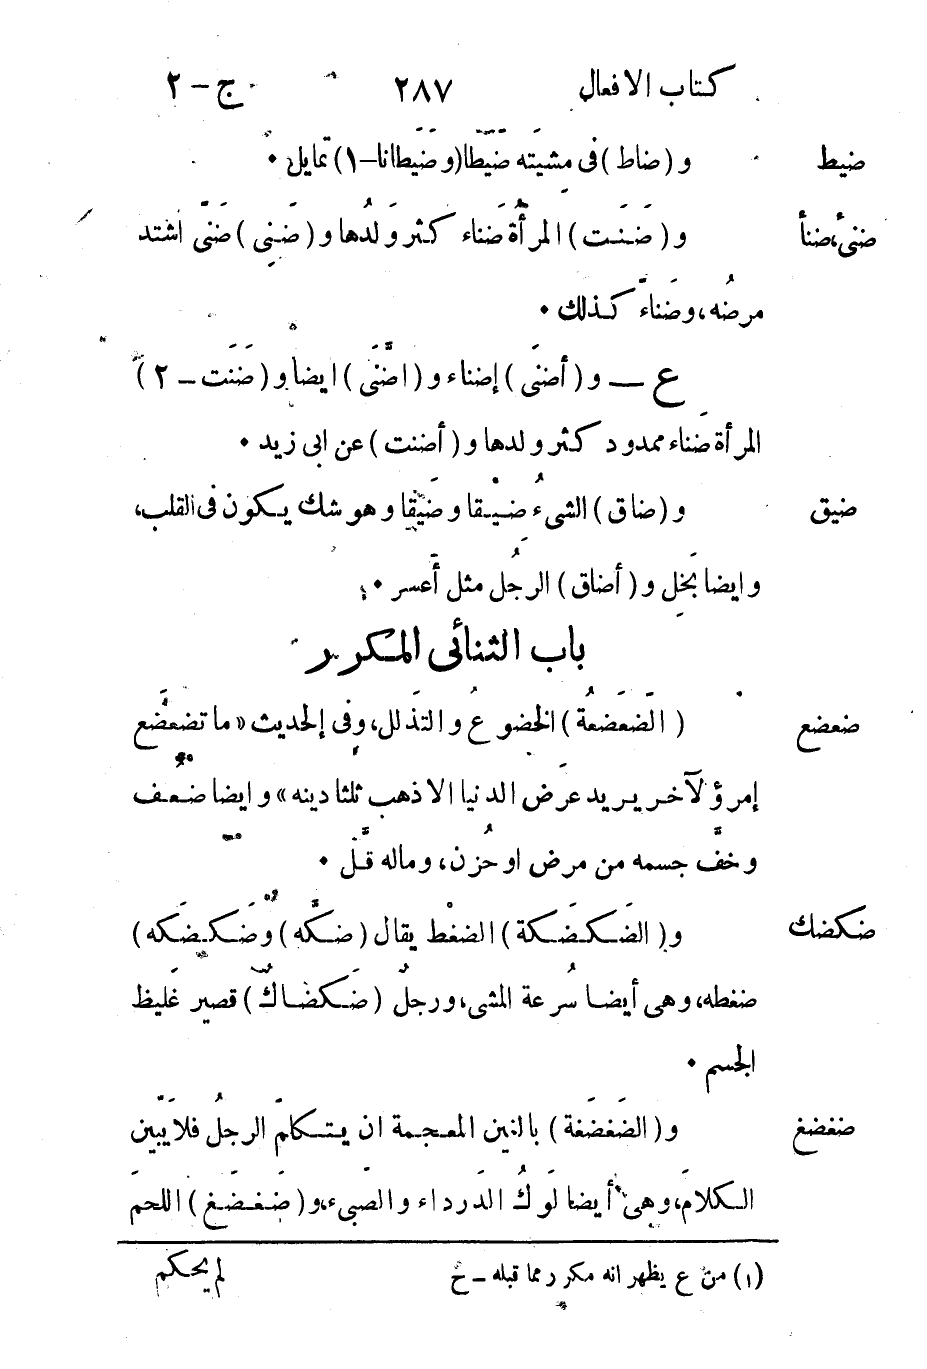 كتاب الافعال ٢٨٧ ج – ٢
ضيط و (ضاط) فى مشيَتَه ضَيَطًا (و ضَيَطانا–١) تمايل ٠
ضنئ، ضنأ و (ضَنَت) المرأةُ ضَناء كثر ولدُها و (ضَنِى) ضَنًى اشتد
مرضُه، وضَناءً كذلك ٠
ع — و (أضنَى) إضناء و (اضَّنَى) ايضا و (ضَنَت – ٢)
المرأة ضَناء ممدود كثر ولدها و (أضنت) عن ابى زيد ٠
ضيق و (ضاق) الشىءُ ضِيْقا و ضَيْقا و هو شك يكون فى القلب،
و ايضا بَخِل و (أضاق) الرجلُ مثل أعسر ٠
باب الثنائى المكرر
ضعضع (الضَّعضَعةُ) الخضوعُ و التذَلل، وفى الحديث «ما تضعضَع
إمرؤ لآخر يريد عَرض الدنيا الا ذهب ثلثا دينه» و ايضا ضعُف
و خفَّ جسمه من مرض او حُزن، و ماله قلَّ ٠
ضكضك و (الضَكضَكة) الضغْط يقال (ضكَّه) و (ضَكضَكه)
ضغطه، وهى أيضا سُرعة المشى، ورجلٌ (ضَكضاكٌ) قصير غَليظ
الجسم ٠
ضغضغ و (الضَغضَغة) بالغين المعجمة ان يتكلمَ الرجلُ فلا يُبَين
الكلامَ، وهى أيضا لَوكُ الدَرداء و الصَبىء، و (ضَغضَغ) اللحمَ
(١) من ع يظهر انه مكرر مما قبله – ح لم يحكم